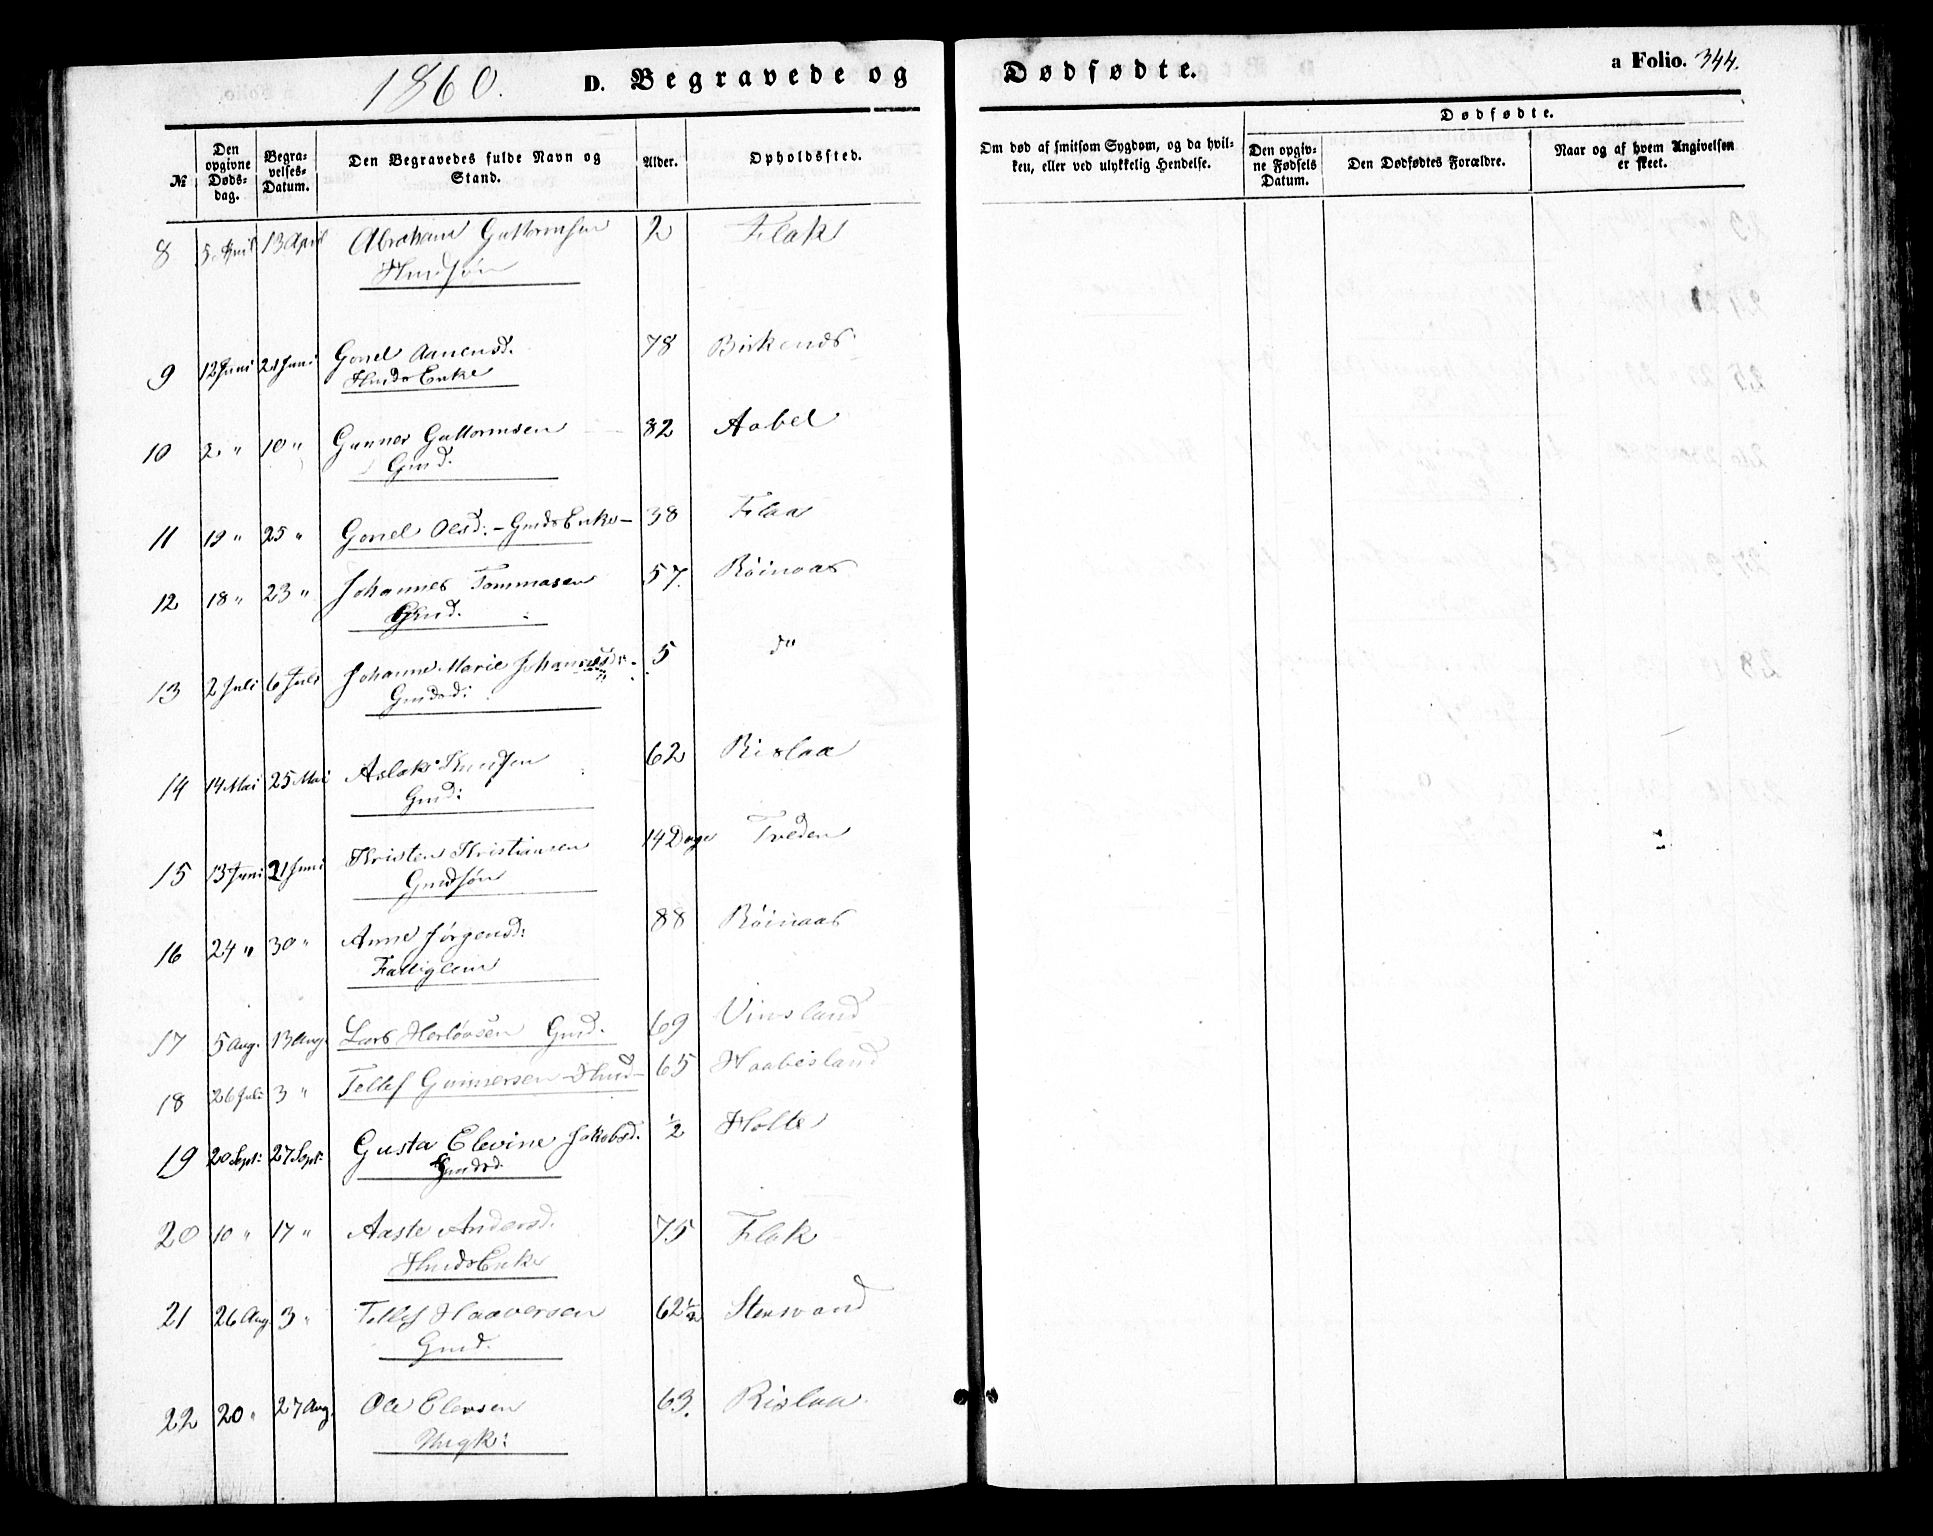 1860. D. Begravede og Dødfødte. a Folio. 344.
№
Den opgivne Døds-dag.
Begra-velses-Datum.
Den Begravedes fulde Navn og Stand.
Alder.
Opholdssted.
Om død af smitsom Sygdom, og da hvil-ken, eller ved ulykkelig Hendelse.
Dødfødte.
Den opgiv-ne Fødsels Datum.
Den Dødfødtes Forældre.
Naar og af hvem Angivelsen er skeet.
8 5 April 13 April Abraham Guttormsen 2 Flak
Hmdsøn
9 12 Juni 21 Juni Gonel Aanensd. 78 Birkenes
Hmds Enke
10 2 " 10 " Gunner Guttormsen 82 Aabel
Gmd.
11 19 " 25 " Gonel Olsd: - Gmds Enke - 38 Flaa
12 18 " 23 " Johannes Tommasen 57. Röinaas
Gmd.
13 2 Juli 6 Juli Johanne Marie Johannesdr. 5 do
Gmdsd:
14 14 Mai 25 Mai Aslak Knudsen 62 Rislaa
Gmd:
15 13 Juni 21 Juni Kristen Kristiansen 14 Dage Tveden
Gmdsøn
16 24 " 30 " Anne Jörgensd: 88 Röinaas
Fattiglem
17 5 Aug. 13 Aug. Lars Herlövsen Gmd. 69 Vinsland
18 26 Juli 3 " Tellef Gunnersen - Hmd - 65 Haabesland
19 20 Sept: 27 Sept: Gusta Elevine Jakobsd. ½ Holte
Gmdsd.
20 10 " 17 " Aaste Andersd. 75 Flak
Hmds Enke
21 26 Aug. 3 " Tellef Haaversen 62½ Stenvand
Gmd.
22 20 " 27 Aug. Ole Elevsen 63. Rislaa
Ungk: